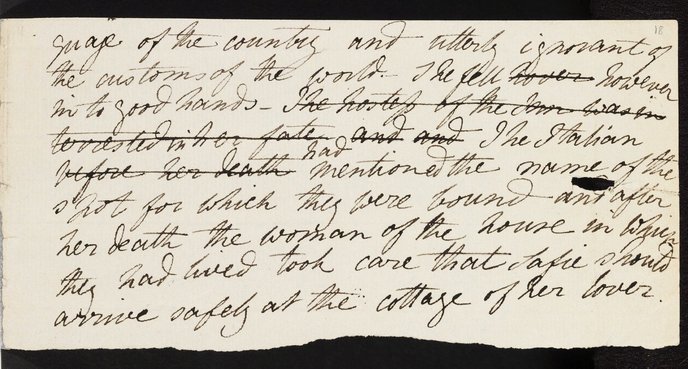 18
guage of the country and utterly ignorant of
the customs of the world. She fell hower however
into good hands - The hostess of the Inn was in
terrested in her fate and and The Italian
before her death had mentioned the name of the
spot for which they were bound and after
her death the woman of the house in which
they had lived took care that Safie should
arrive safely at the cottage of her lover.